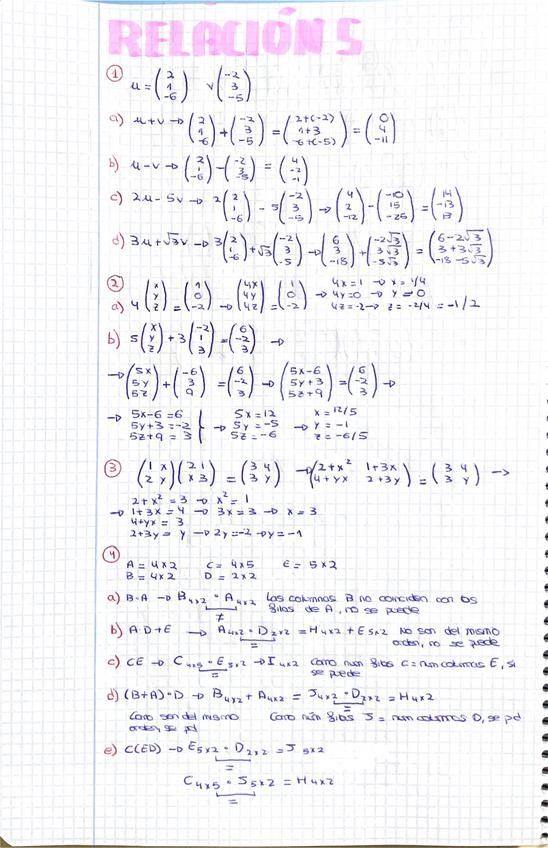 RELACIÓN 5
① u = (2 1 -6) v (-2 3 -5)
a) u+v → (2 1 -6) + (-2 3 -5) = (2+(-2) 1+3 -6+(-5)) = (0 4 -11)
b) u-v → (2 1 -6) - (-2 3 -5) = (4 -2 -1)
c) 2u - 5v → 2(2 1 -6) - 5(-2 3 -5) → (4 2 -12) - (-10 15 -25) = (14 -13 13)
d) 3u + √3v → 3(2 1 -6) + √3(-2 3 -5) → (6 3 -18) + (-2√3 3√3 -5√3) = (6-2√3 3+3√3 -18-5√3)
②
a) 4(x y z) = (1 0 -2) → (4x 4y 4z) = (1 0 -2) → 4x=1 → x=1/4
4y=0 → y=0
4z=-2 → z=-2/4 = -1/2
b) 5(x y z) + 3(-2 1 3) = (6 -2 3) →
→ (5x 5y 5z) + (-6 3 9) = (6 -2 3) → (5x-6 5y+3 5z+9) = (6 -2 3) →
→ 5x-6=6 5x=12 x=12/5
5y+3=-2 → 5y=-5 → y=-1
5z+9=3 5z=-6 z=-6/5
③ (1 x 2 y)(2 1 x 3) = (3 4 3 y) → (2+x² 1+3x 4+yx 2+3y) = (3 4 3 y) →
2+x² = 3 → x² = 1
→ 1+3x = 4 → 3x = 3 → x = 3
4+yx = 3
2+3y = y → 2y = -2 → y = -1
④
A = 4x2 C = 4x5 E = 5x2
B = 4x2 D = 2x2
a) B·A → B4x2 · A4x2 Las columnas B no coinciden con las
≠ filas de A, no se puede
b) A·D+E → A4x2 · D2x2 = H4x2 + E5x2 No son del mismo
= orden, no se puede
c) CE → C4x5 · E5x2 → I4x2 Como núm filas C = num columnas E, si
= se puede
d) (B+A)·D → B4x2 + A4x2 = J4x2 · D2x2 = H4x2
=
Como son del mismo Como núm filas J = num columnas D, se pd
orden, se pd
e) C(ED) → E5x2 · D2x2 = J5x2
=
C4x5 · J5x2 = H4x2
=